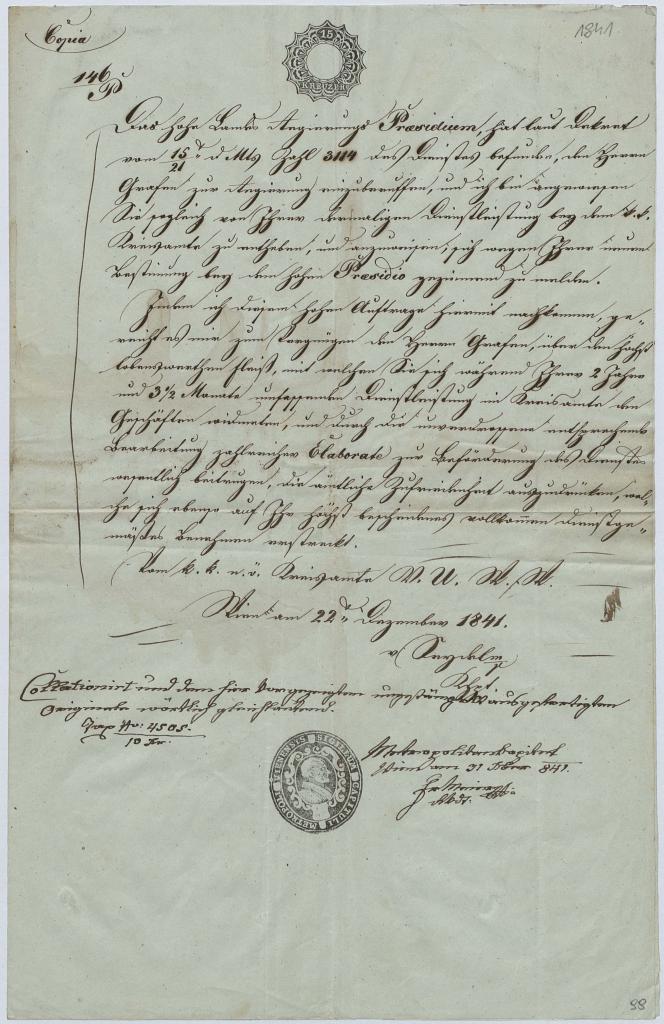 Copia
1841
15
KREUZER
146
P
Das hohe Landes Regierungs Præsidium, hat laut Dekret
vom 15/21 d Mts Zahl 3114 des Dienstes befunden, den Herrn
Grafen zur Regierung einzuberuffen, und ich bin angewiesen
Sie sogleich von Ihrer dermaligen Dienstleistung bey dem k. k.
Kreisamte zu entheben, und anzuweisen, sich wegen Ihrer neuen
Bestimung bey dem hohen Præsidio geziemend zu melden.
Indem ich diesem hohen Auftrage hiermit nachkomme, ge-
reicht es mir zum Vergnügen dem Herrn Grafen, über den höchst
lobenswerthen Fleiß, mit welchen Sie sich während Ihrer 2 Jahre
und 3 1/2 Monate umfassenden Dienstleistung im Kreisamte den
Geschäften widmeten, und durch die unverdrossene entsprechende
Bearbeitung zahlreicher Elaborate zur Beförderung des Dienstes
wesentlich beitrugen, die ämtliche Zufriedenheit auszudrücken, wel-
che sich ebenso auf Ihr höchst bescheidenes vollkommen dienstge-
mäßes Benehmen erstreckt.
Vom k. k. n. ö. Kreisamte V. U. W. W.
Wien am 22 Dezember 1841.
v Seydel
Collationirt und dem hier vorgezeigten ausgefertigten
Originale wörtlich gleichlautend.
Tax No: 4505.
10 Kr.
Metropolitankapitel
Wien am 31 Xber 841.
SIGILLUM CAPITULI METROPOLIT VIENENSIS
88